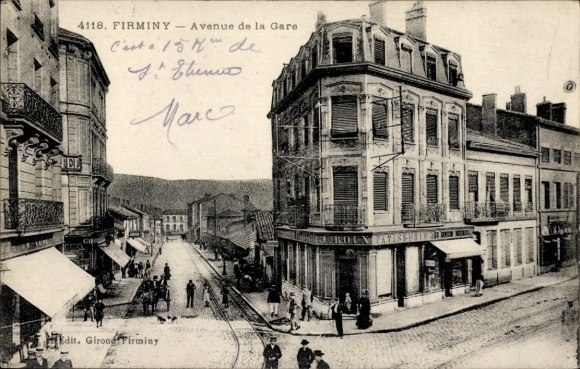 4118. FIRMINY — Avenue de la Gare
c'est à 15 Km de
St Etienne
Marc
J. ROUX PATISSERIE
Edit. Giroud Firminy